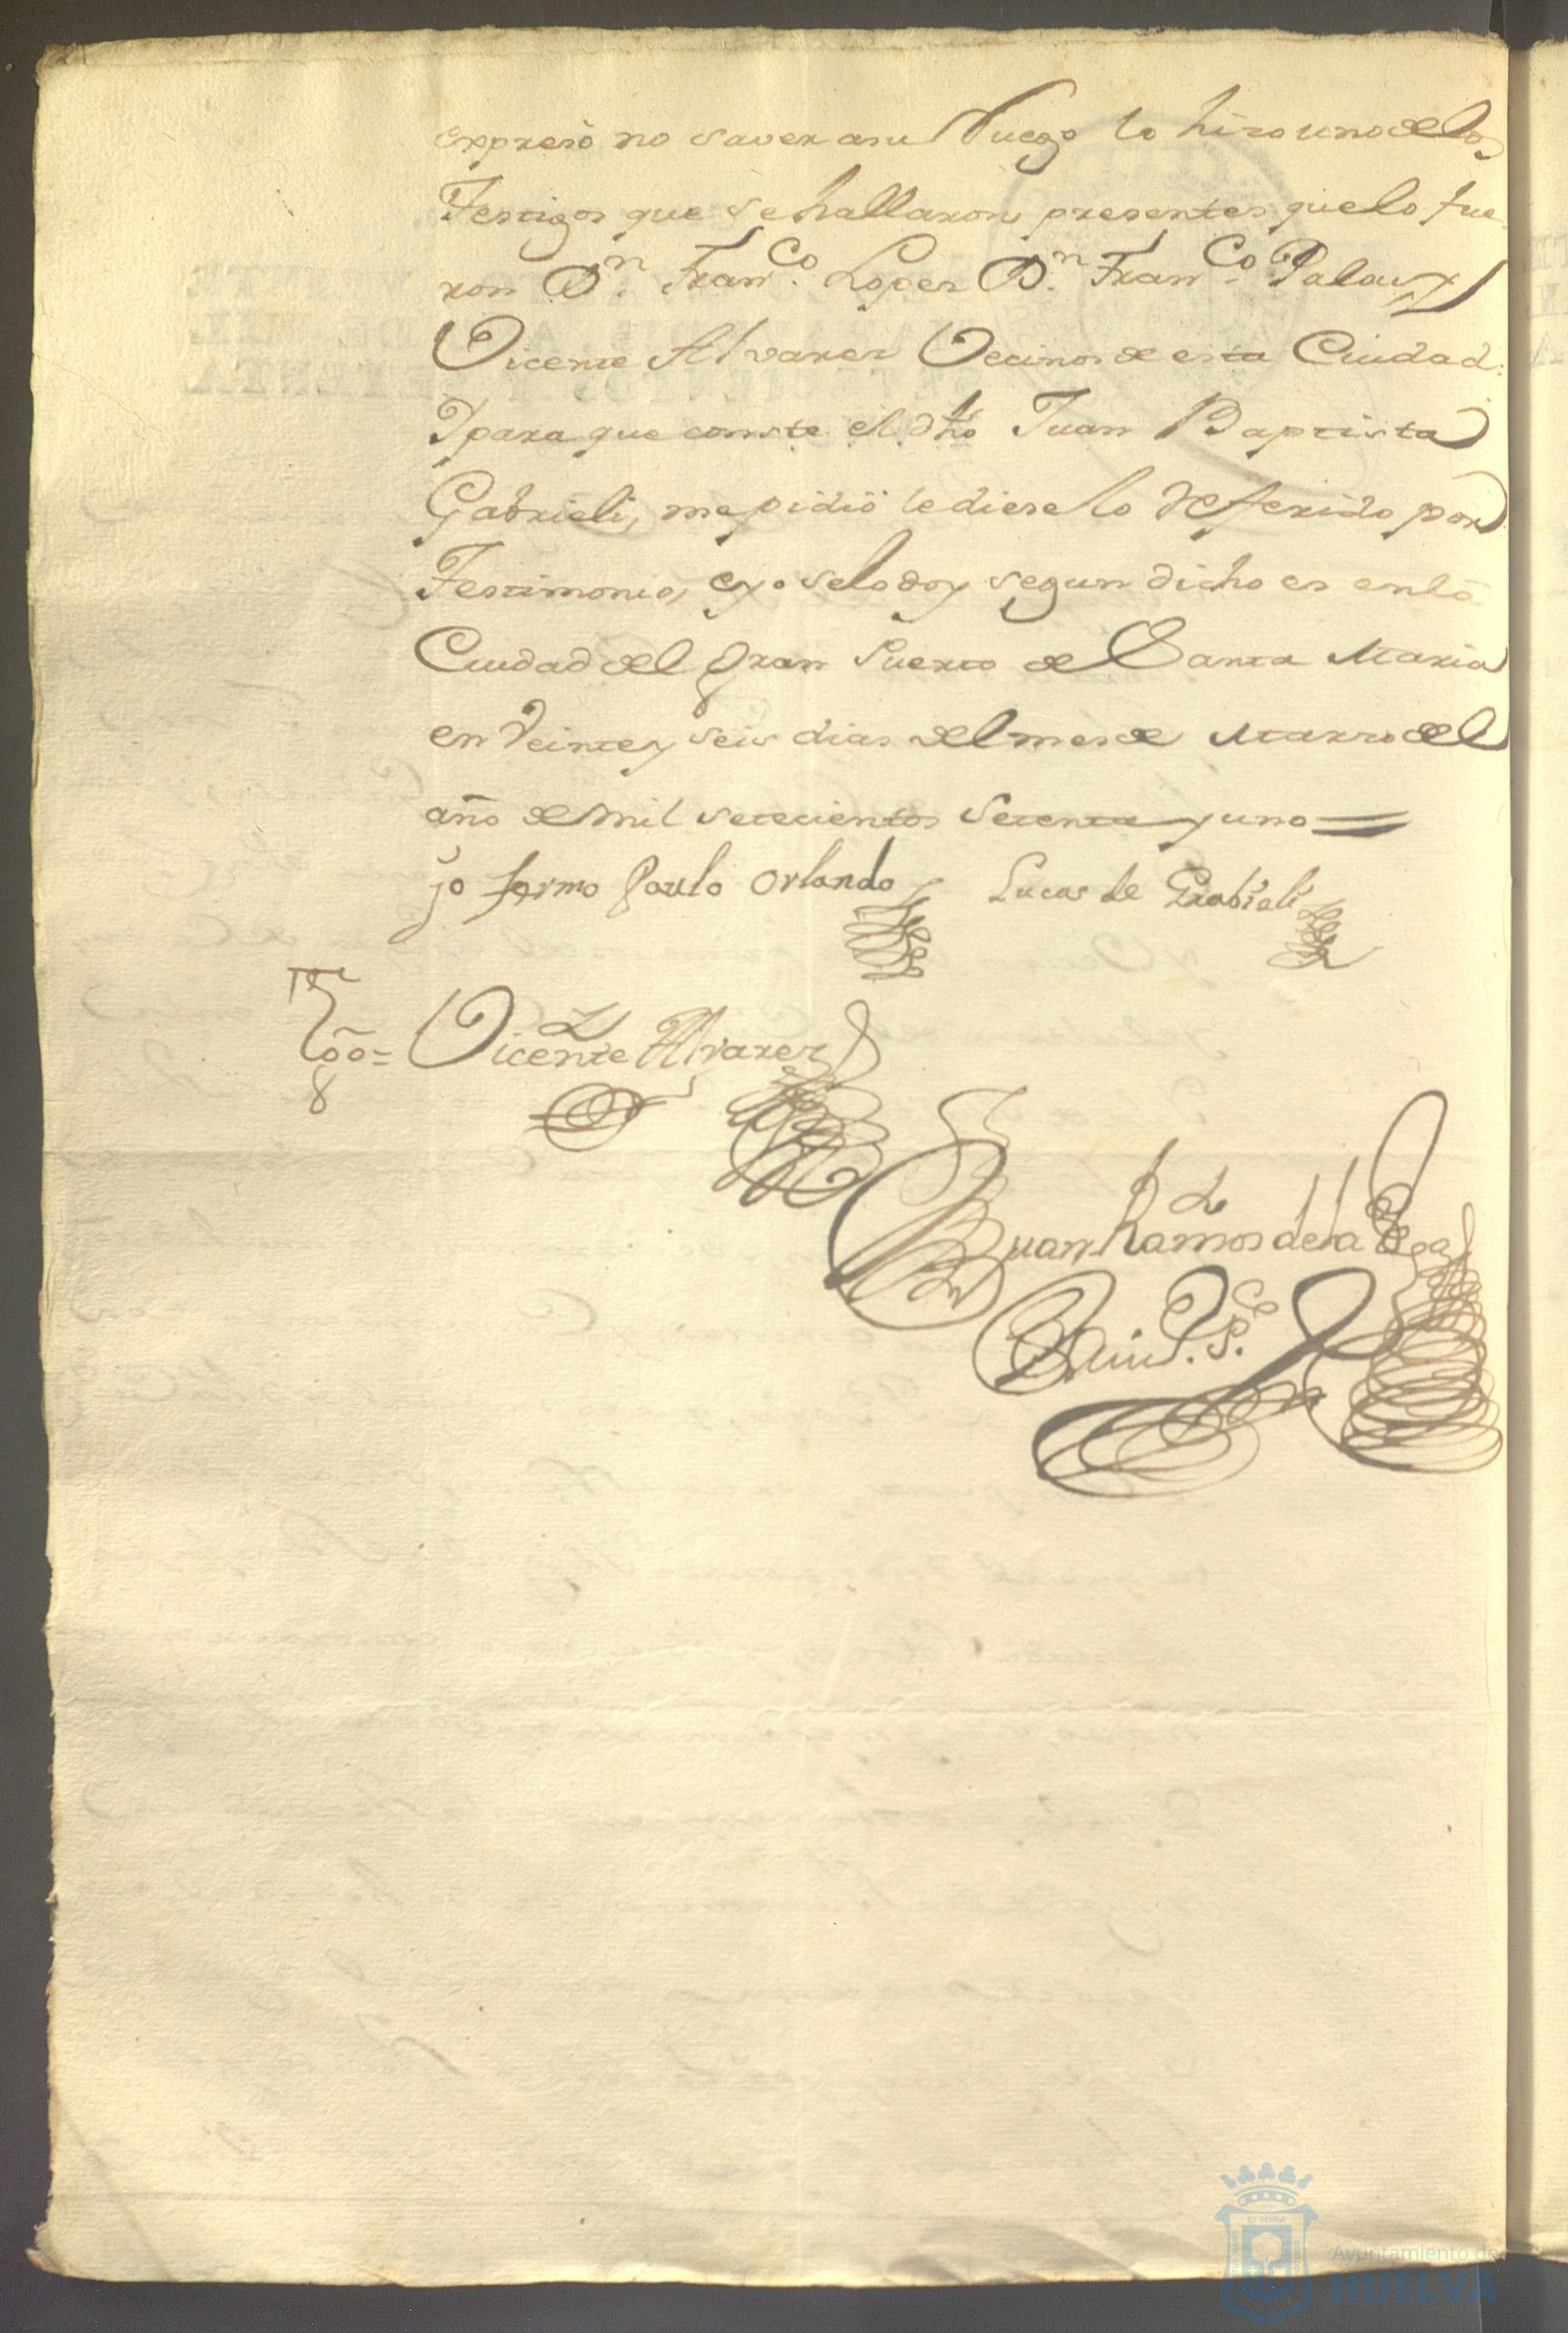 expresò no saver asu Ruego lo hizo uno de los
Testigos que se hallaron presentes que lo fue
ron Dn. Franco. Lopez Dn. Franco. Palau y
Vicente Alvarez Vecinos de esta Ciudad.
Y para que conste el dho Juan Baptista
Gabrieli, me pidiò le diese lo Referido por
Testimonio, e yo selo doy segun dicho es en la
Ciudad del Gran Puerto de Santa Maria
en Veinte y seis dias del mes de Marzo del
año de mil setecientos Setenta y uno =
jo fermo Paulo Orlando Lucas de Grabieli
Vicente Alvarez
Juan Ramos de la Vega
Essno. Ppco.
Ayuntamiento de
HUELVA